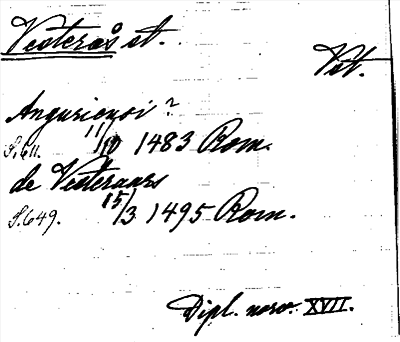 Vesterås st.
Vst.
Angusiensi?
S. 611. 11/10 1483 Rom.
de Vesteraars
S. 649. 15/3 1495 Rom.
Dipl. norv. XVII.